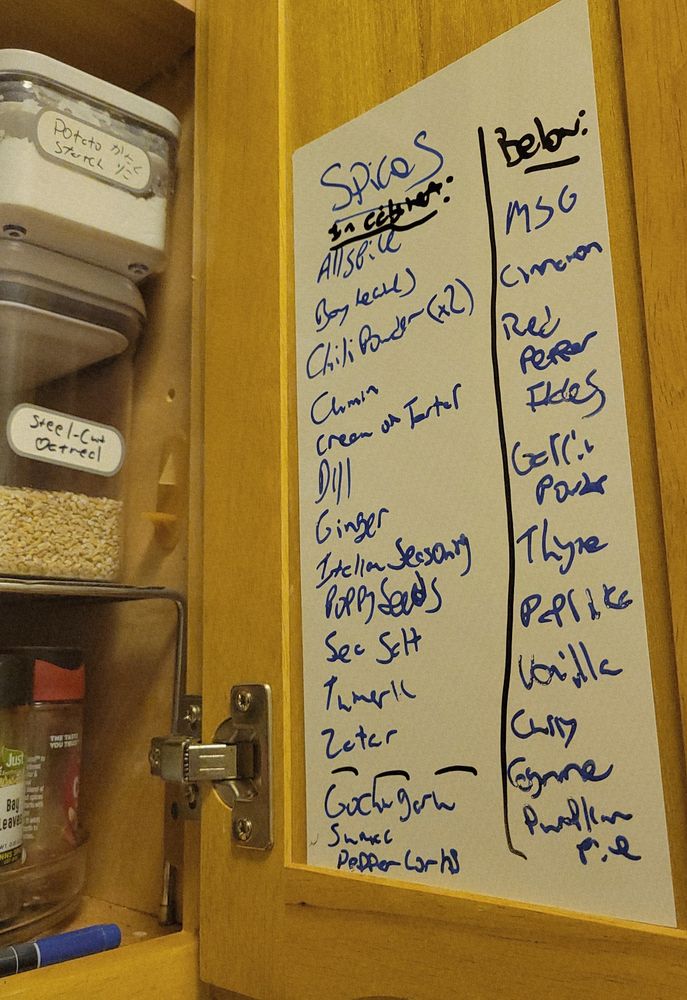 Potato かたく
Starch りこ
Steel-Cut
Oatmeal
Spices
In cabinet:
Allspice
Bay Leaves
Chili Powder (x2)
Cumin
Cream on Tartar
Dill
Ginger
Italian Seasoning
Poppy Seeds
Sea Salt
Tumeric
Zatar
Gochugaru
Sumac
Peppercorns
Below:
MSG
Cinnamon
Red
Pepper
Flakes
Garlic
Powder
Thyme
Paprika
Vanilla
Curry
Cayenne
Pumpkin
Pie
THE TASTE
YOU TRUST
Just
Bay
Leaves